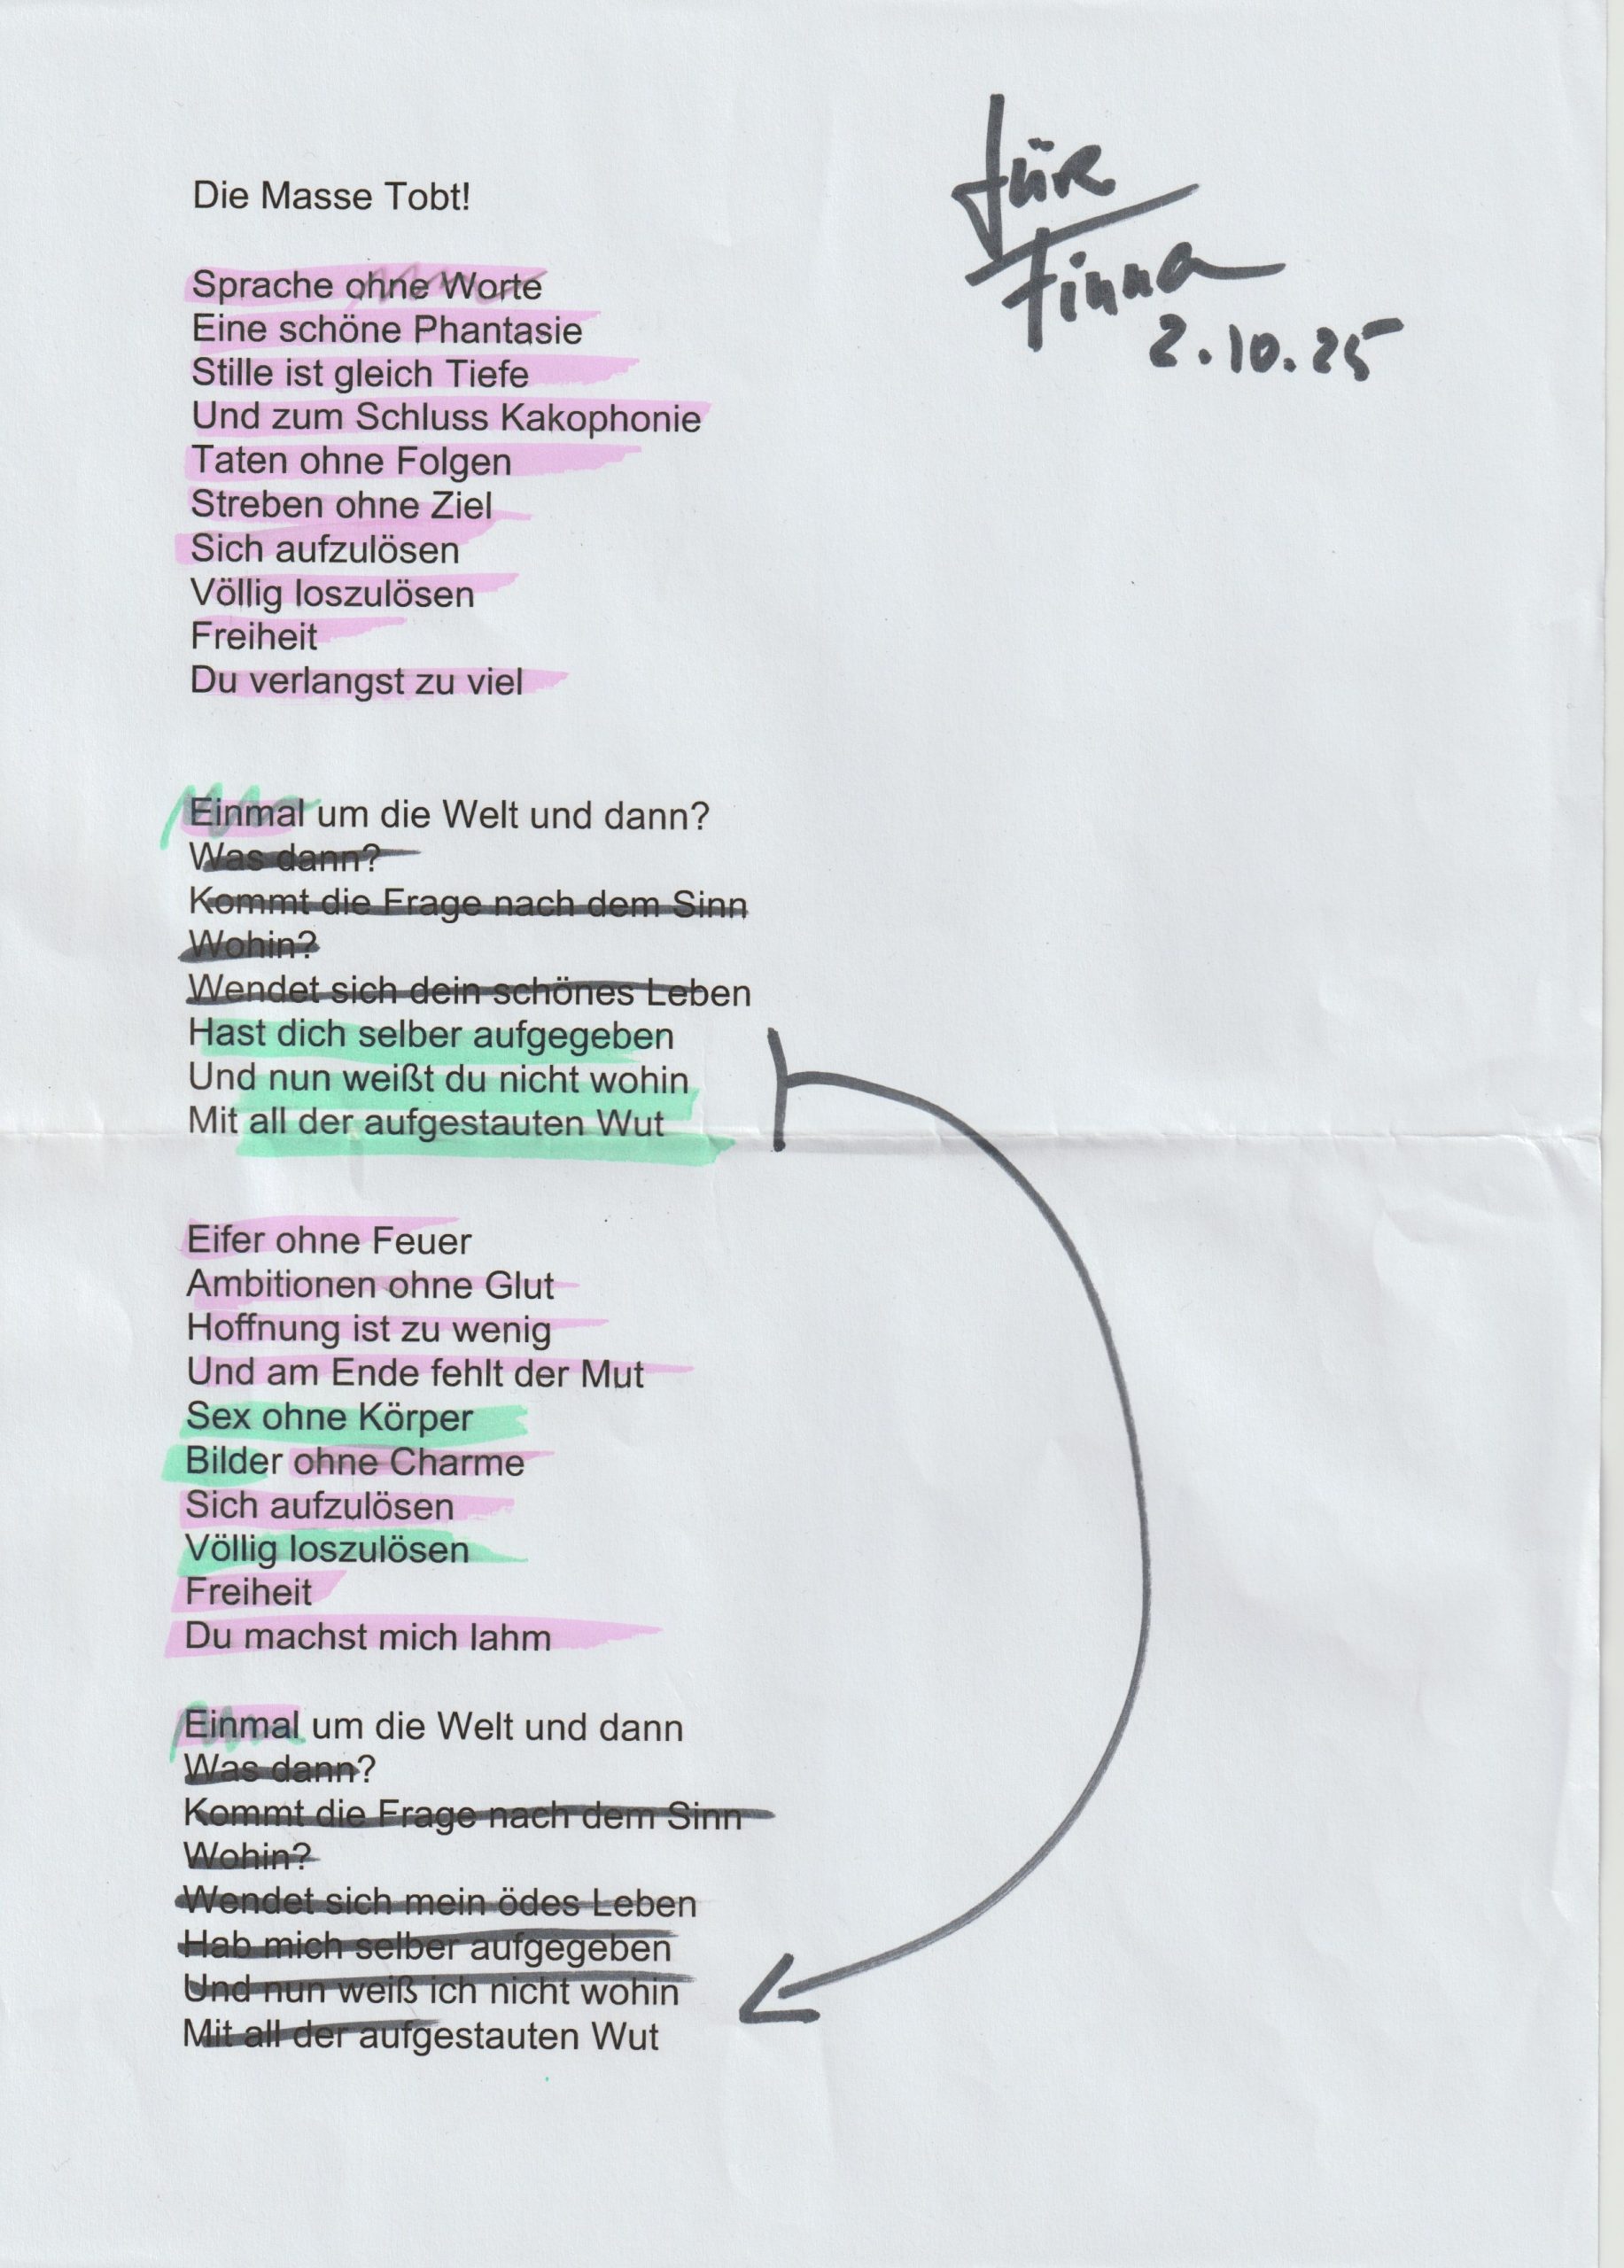 für
Finna
2.10.25
Die Masse Tobt!
Sprache ohne Worte
Eine schöne Phantasie
Stille ist gleich Tiefe
Und zum Schluss Kakophonie
Taten ohne Folgen
Streben ohne Ziel
Sich aufzulösen
Völlig loszulösen
Freiheit
Du verlangst zu viel
Einmal um die Welt und dann?
Was dann?
Kommt die Frage nach dem Sinn
Wohin?
Wendet sich dein schönes Leben
Hast dich selber aufgegeben
Und nun weißt du nicht wohin
Mit all der aufgestauten Wut
Eifer ohne Feuer
Ambitionen ohne Glut
Hoffnung ist zu wenig
Und am Ende fehlt der Mut
Sex ohne Körper
Bilder ohne Charme
Sich aufzulösen
Völlig loszulösen
Freiheit
Du machst mich lahm
Einmal um die Welt und dann
Was dann?
Kommt die Frage nach dem Sinn
Wohin?
Wendet sich mein ödes Leben
Hab mich selber aufgegeben
Und nun weiß ich nicht wohin
Mit all der aufgestauten Wut